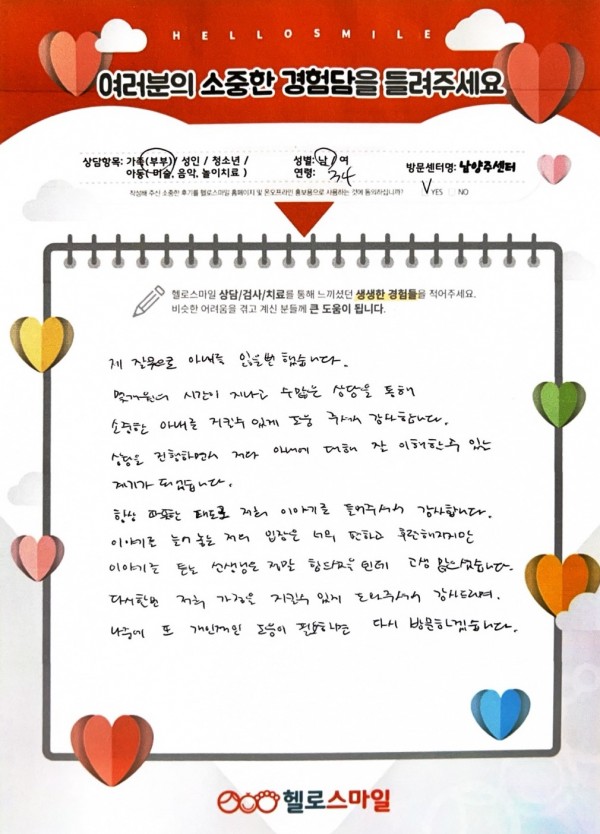 HELLOSMILE
여러분의 소중한 경험담을 들려주세요
상담항목: 가족(부부) / 성인 / 청소년 /
아동( 미술, 음악, 놀이치료 )
성별: 남 / 여
연령: 34
방문센터명: 남양주센터
작성해 주신 소중한 후기를 헬로스마일 홈페이지 및 온오프라인 홍보용으로 사용하는 것에 동의하십니까? V YES NO
헬로스마일 상담/검사/치료를 통해 느끼셨던 생생한 경험들을 적어주세요.
비슷한 어려움을 겪고 계신 분들께 큰 도움이 됩니다.
제 잘못으로 아내를 잃을뻔 했습니다.
시간이 지나고 수많은 상담을 통해
소중한 아내를 지킬수 있게 도움 주셔서 감사합니다.
상담을 진행하면서 저와 아내에 대해 잘 이해할수 있는
계기가 되었습니다.
항상 따뜻한 태도로 저희 이야기를 들어주셔서 감사합니다.
이야기를 늘어 놓는 저희 입장은 너무 편하고 후련해지지만
이야기를 듣는 선생님은 정말 힘드셨을 텐데 고생 많으셨습니다.
다시한번 저희 가정을 지킬수 있게 도와주셔서 감사드리며.
나중에 또 개인적인 도움이 필요하면 다시 방문하겠습니다.
헬로스마일